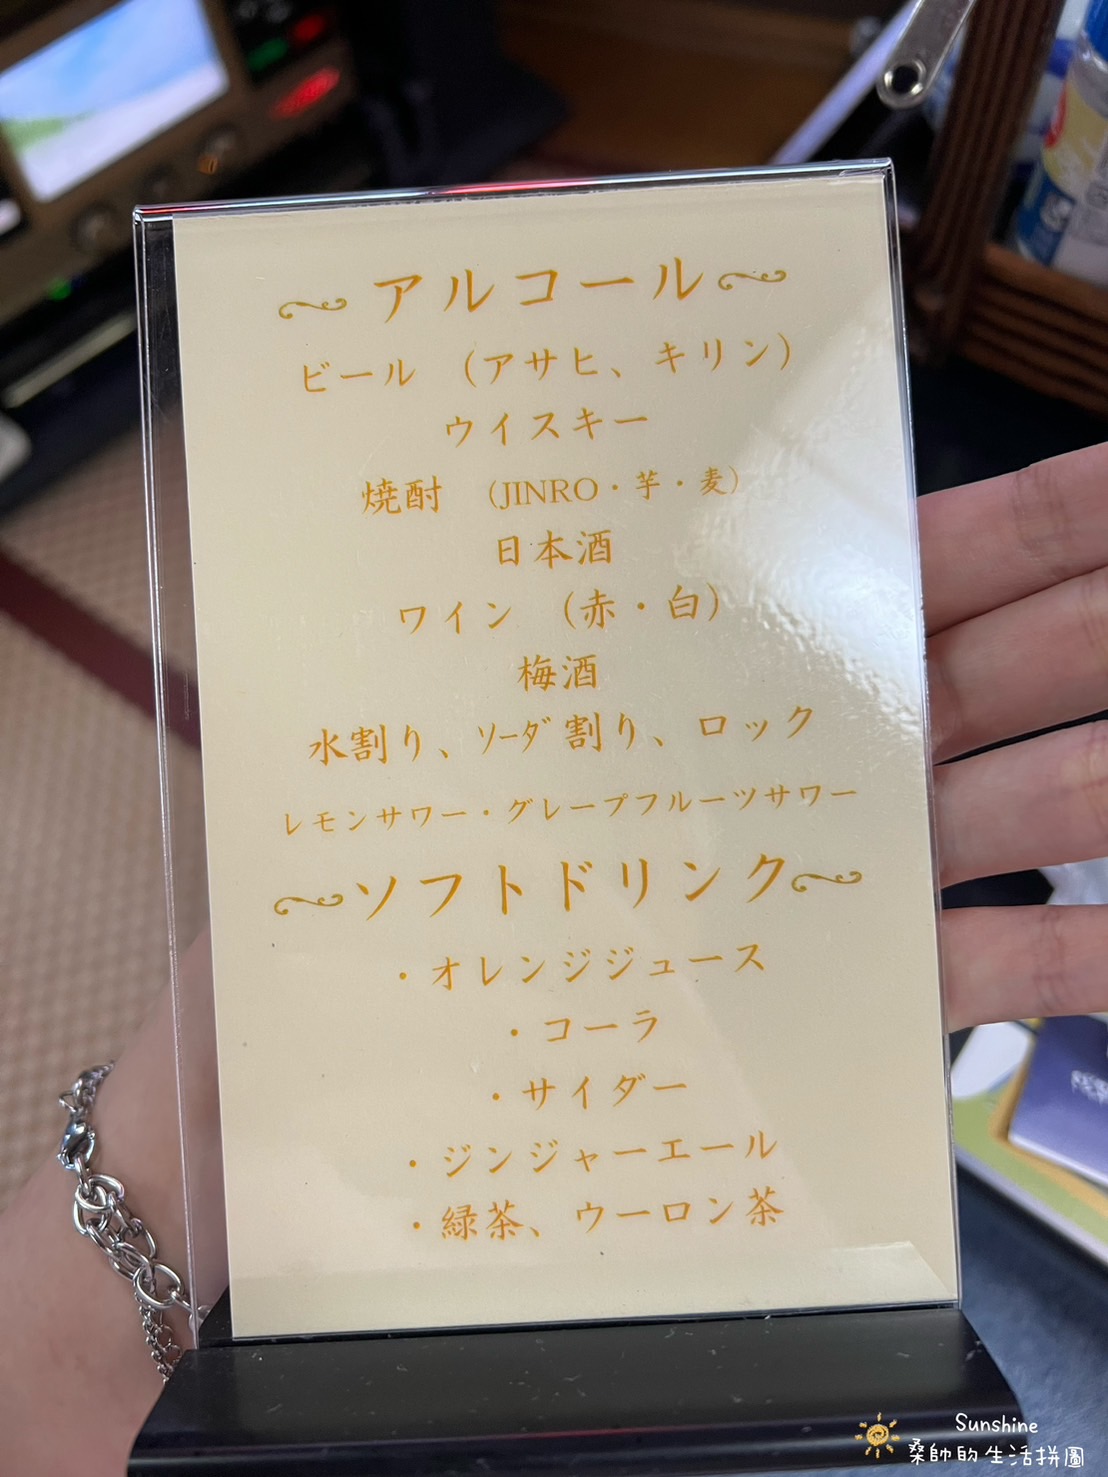 ～アルコール～
ビール （アサヒ、キリン）
ウイスキー
焼酎 （JINRO・芋・麦）
日本酒
ワイン （赤・白）
梅酒
水割り、ｿｰﾀﾞ割り、ロック
レモンサワー・グレープフルーツサワー
～ソフトドリンク～
・オレンジジュース
・コーラ
・サイダー
・ジンジャーエール
・緑茶、ウーロン茶
Sunshine
桑帥的生活拼圖